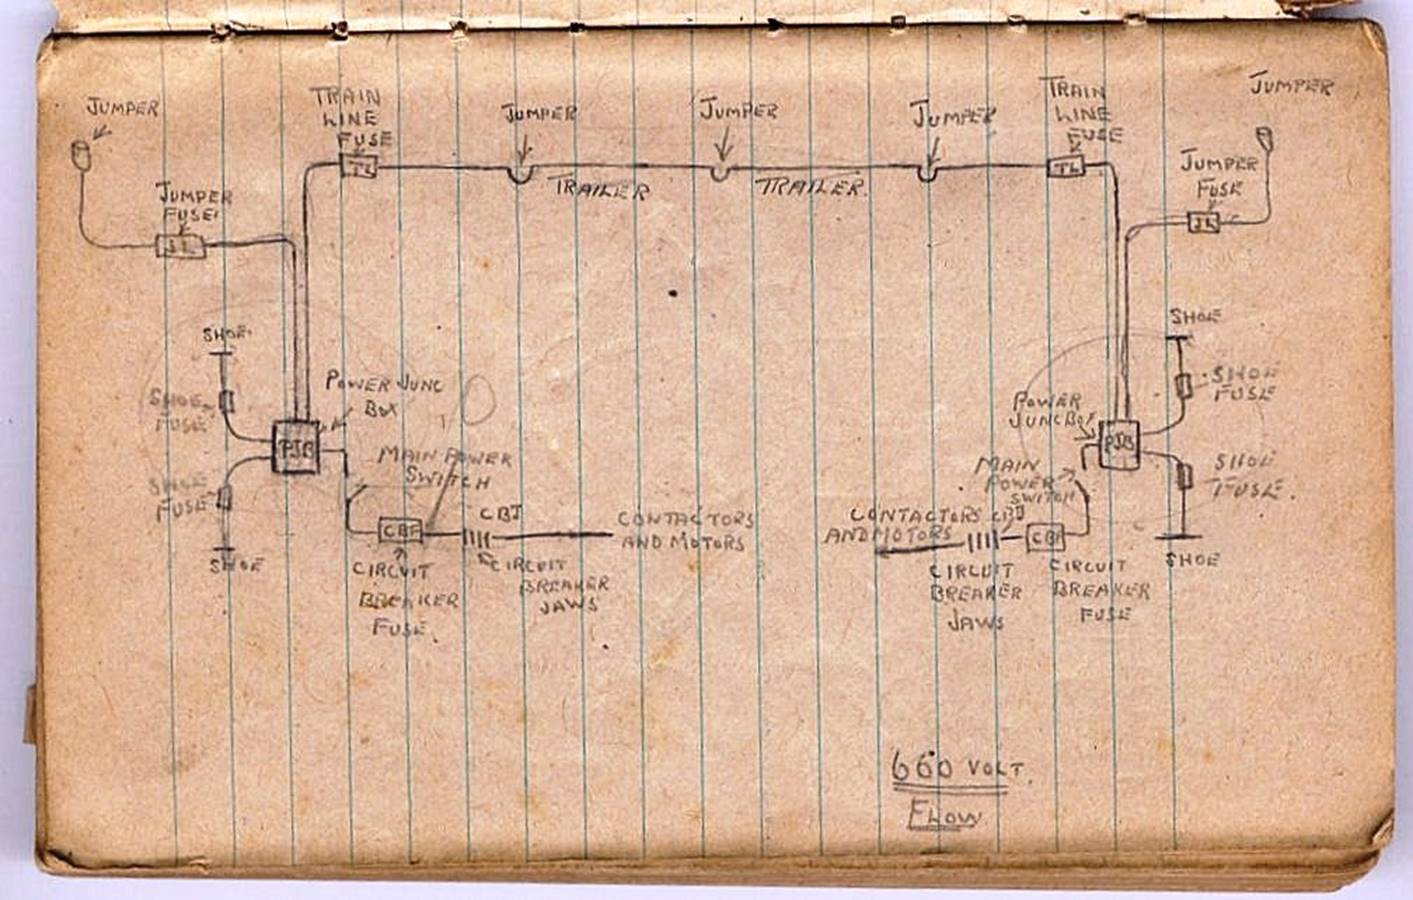 JUMPER
TRAIN
LINE
FUSE
JUMPER
JUMPER
JUMPER
TRAIN
LINE
FUSE
JUMPER
TL
TL
JUMPER
FUSE
TRAILER
TRAILER
JUMPER
FUSE
SHOE
SHOE
POWER JUNC
BOX
SHOE
FUSE
PJB
MAIN POWER
SWITCH
SHOE
FUSE
SHOE
CBF
CBJ
CONTACTORS
AND MOTORS
CIRCUIT
BREAKER
FUSE
CIRCUIT
BREAKER
JAWS
POWER
JUNC BOX
PJB
SHOE
FUSE
MAIN
POWER
SWITCH
SHOE
FUSE
SHOE
CONTACTORS
AND MOTORS
CBJ
CBF
CIRCUIT
BREAKER
JAWS
CIRCUIT
BREAKER
FUSE
660 VOLT
FLOW